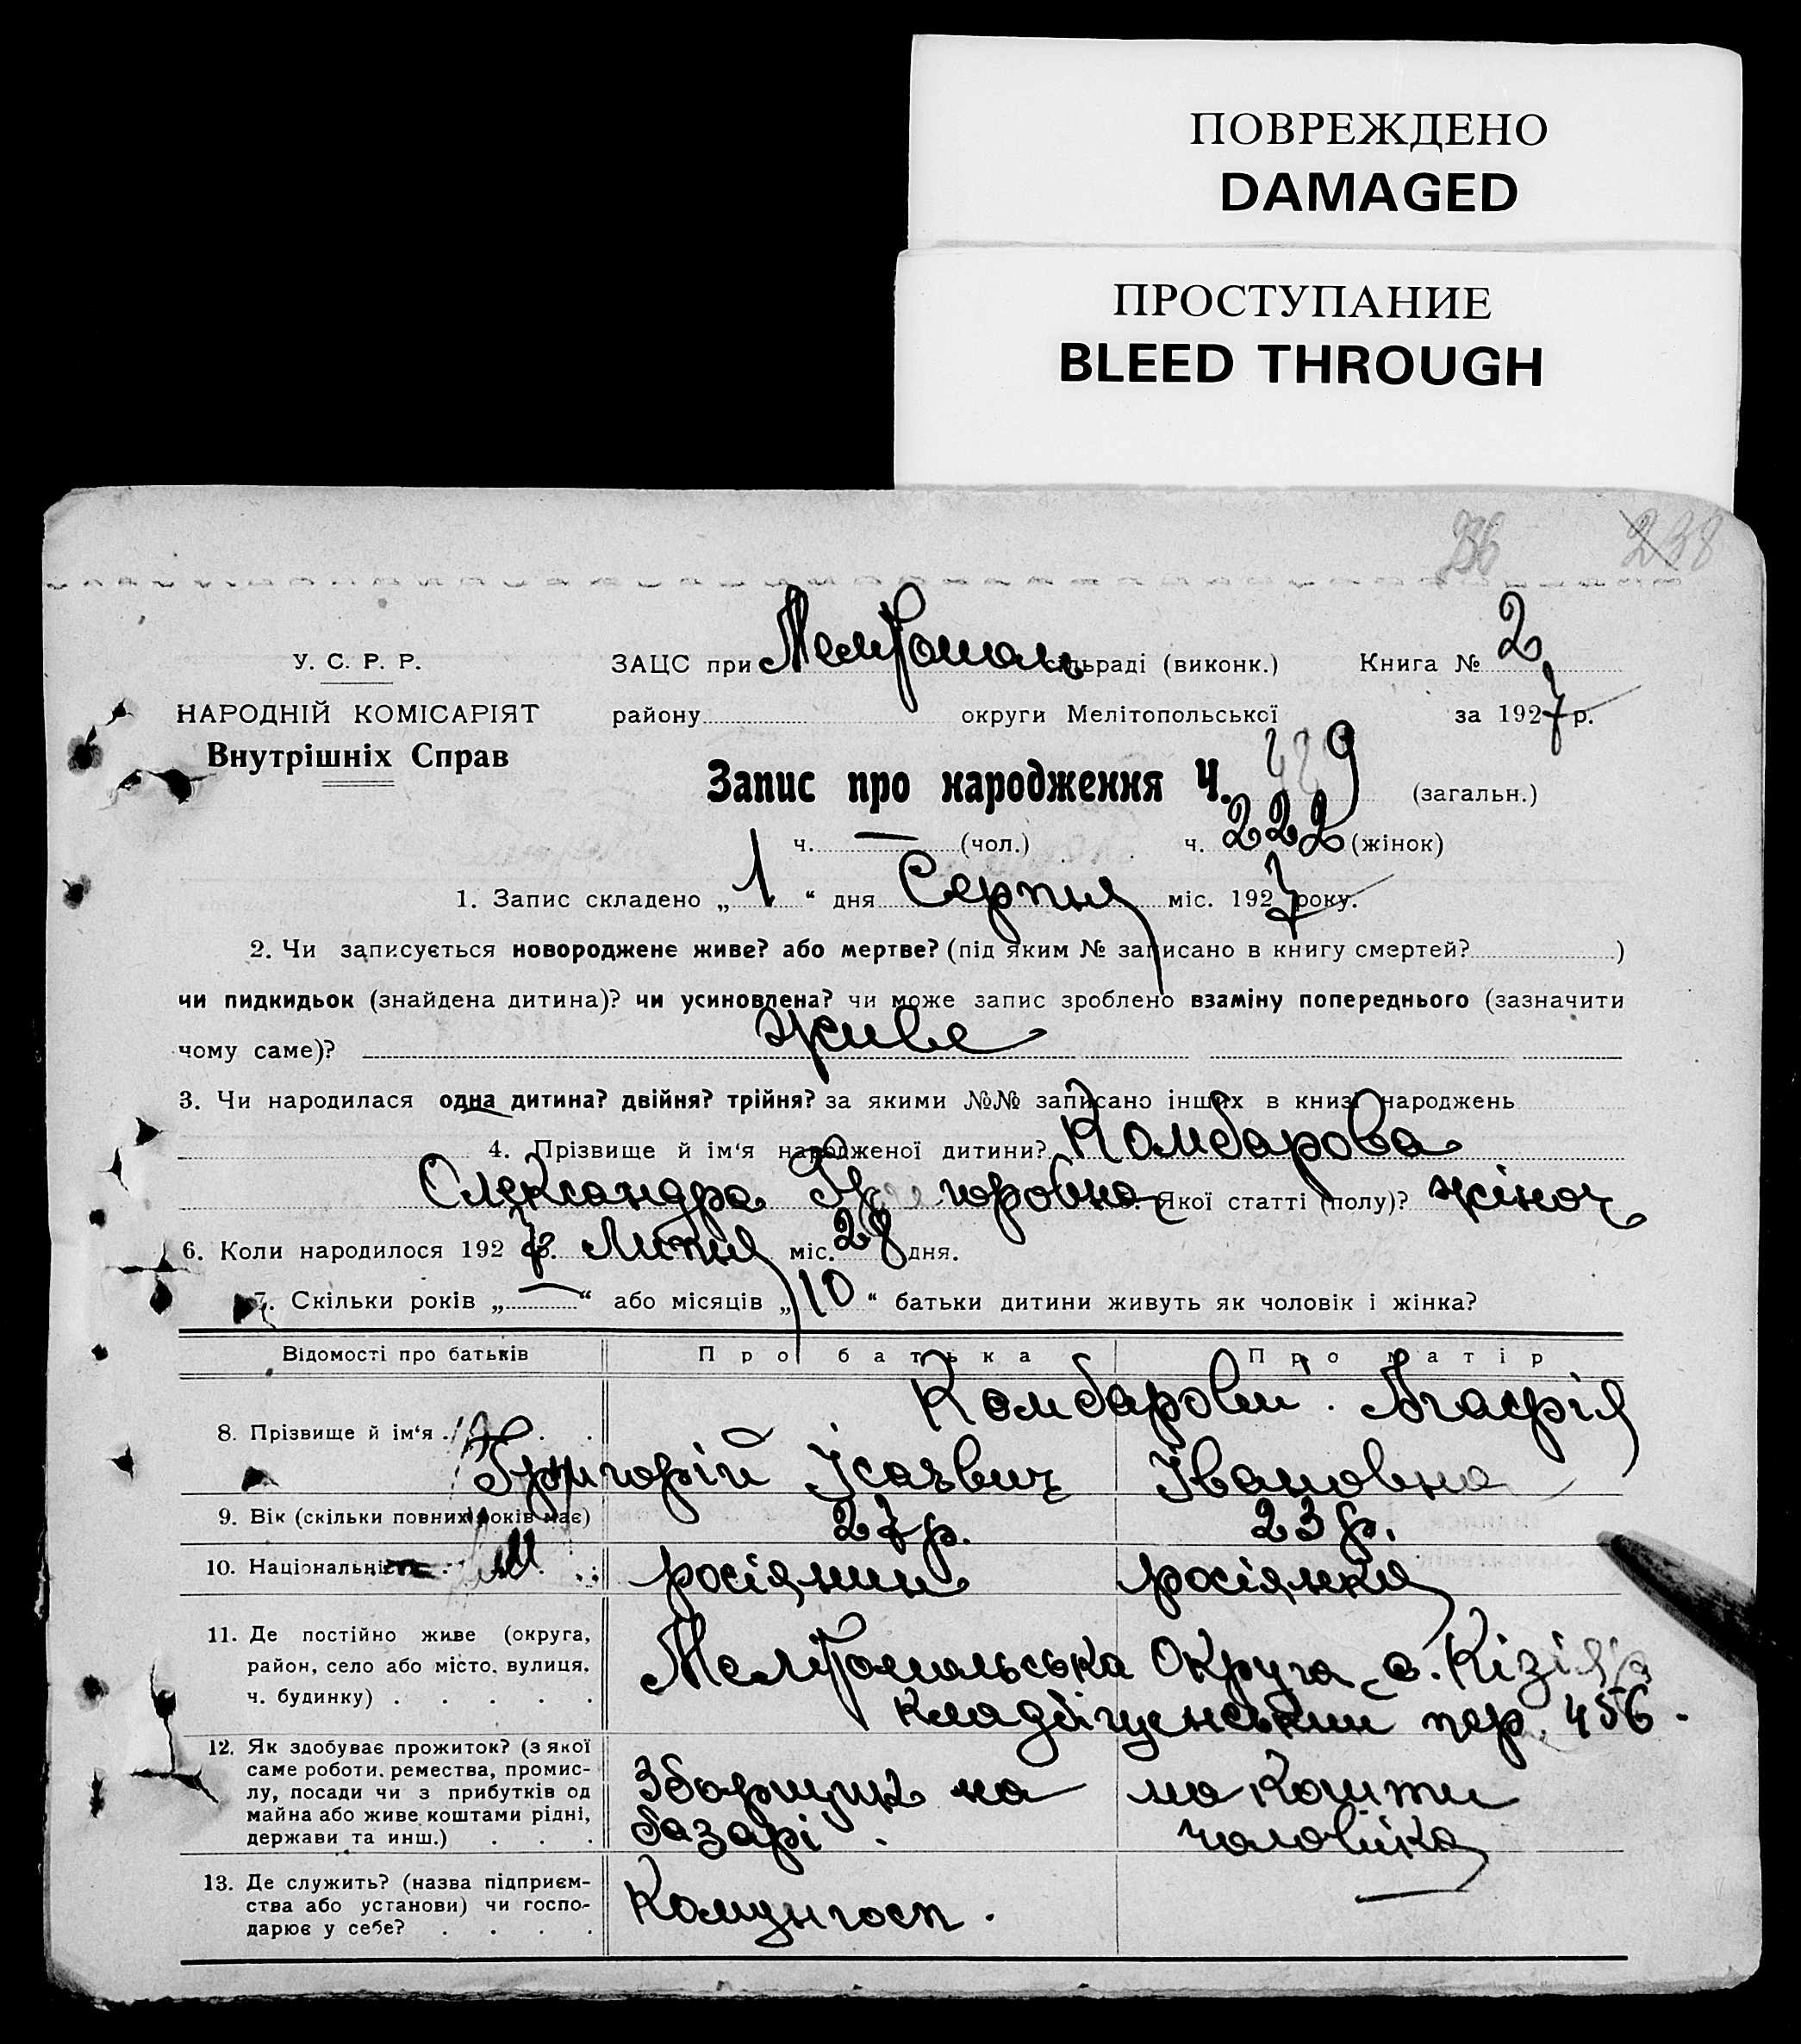 ПОВРЕЖДЕНО
DAMAGED
ПРОСТУПАНИЕ
BLEED THROUGH
236 238
У. С. Р. Р. ЗАЦС при Мелітополь сільраді (виконк.) Книга № 2
НАРОДНІЙ КОМІСАРІЯТ району округи Мелітопольської за 1927 р.
Внутрішніх Справ
Запис про народження Ч. 429 (загальн.)
ч. — (чол.) ч. 222 (жінок)
1. Запис складено „ 1 “ дня Серпня міс. 1927 року.
2. Чи записується новороджене живе? або мертве? (під яким № записано в книгу смертей? )
чи пидкидьок (знайдена дитина)? чи усиновлена? чи може запис зроблено взаміну попереднього (зазначити
чому саме)? живе
3. Чи народилася одна дитина? двійня? трійня? за якими №№ записано інших в книзі народжень
4. Прізвище й ім‘я народженої дитини? Камбарова
Олександра Григоровна Якої статті (полу)? жіноч
6. Коли народилося 1927 р. Липня міс. 28 дня.
7. Скільки років „ — “ або місяців „ 10 “ батьки дитини живуть як чоловік і жінка?
Відомості про батьків Про батька Про матір
8. Прізвище й ім‘я . . . Камбарови . Агафія
Григорій Ісаєвич Івановна
9. Вік (скільки повних років має) 27 р. 23 р.
10. Національність . . . росіянин росіянка
11. Де постійно живе (округа,
район, село або місто, вулиця,
ч. будинку) . . . . . Мелітопольська Округа с. Кізіяр
Кладбіщенський пер. 456.
12. Як здобуває прожиток? (з якої
саме роботи, ремества, промис-
лу, посади чи з прибутків од
майна або живе коштами рідні,
держави та инш.) . . . Зборщик на базарі . на кошти чоловіка
13. Де служить? (назва підприєм-
ства або установи) чи госпо-
дарює у себе? . . . . Комунгосп .